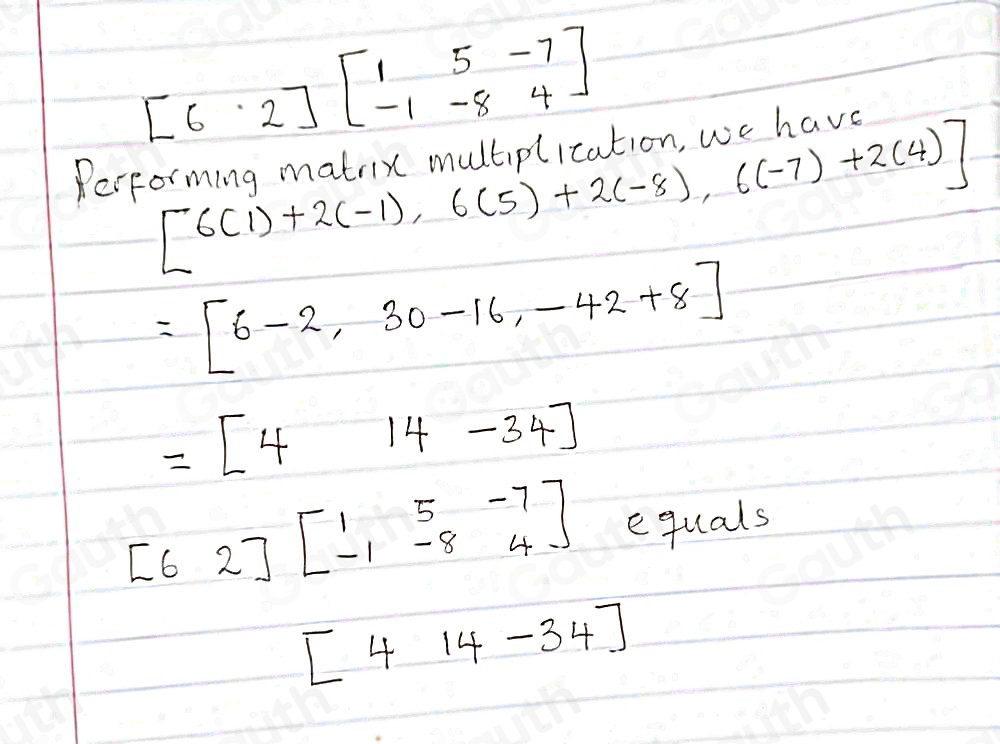 [6 2] [1 5 -7
-1 -8 4]
Performing matrix multiplication, we have
[6(1)+2(-1), 6(5)+2(-8), 6(-7)+2(4)]
= [6-2, 30-16, -42+8]
= [4 14 -34]
[6 2] [1 5 -7
-1 -8 4] equals
[4 14 -34]